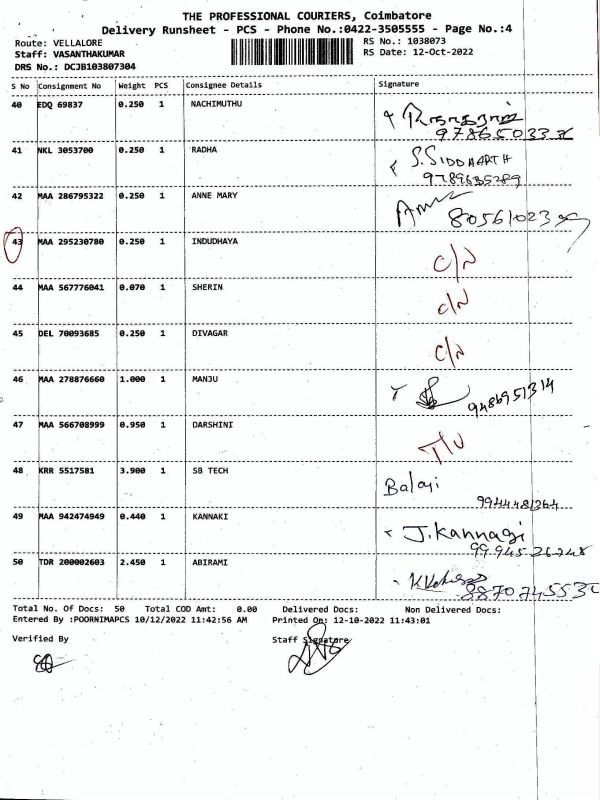 THE PROFESSIONAL COURIERS, Coimbatore
Delivery Runsheet - PCS - Phone No.:0422-3505555 - Page No.:4
Route: VELLALORE
Staff: VASANTHAKUMAR
DRS No.: DCJB103807304
RS No.: 1038073
RS Date: 12-Oct-2022
S No Consignment No Weight PCS Consignee Details Signature
40 EDQ 69837 0.250 1 NACHIMUTHU
41 NKL 3053700 0.250 1 RADHA S. SIDDHARTH
9789635289
42 MAA 286795322 0.250 1 ANNE MARY
43 MAA 295230780 0.250 1 INDUDHAYA C/N
44 MAA 567776041 0.070 1 SHERIN C/N
45 DEL 70093685 0.250 1 DIVAGAR C/N
46 MAA 278876660 1.000 1 MANJU
9486951314
47 MAA 566708999 0.950 1 DARSHINI T/U
48 KRR 5517581 3.900 1 SB TECH Balaji
9944481264
49 MAA 942474949 0.440 1 KANNAKI J. Kannagi
9994526248
50 TDR 200002603 2.450 1 ABIRAMI
8870745530
Total No. Of Docs: 50 Total COD Amt: 0.00 Delivered Docs: Non Delivered Docs:
Entered By :POORNIMAPCS 10/12/2022 11:42:56 AM Printed On: 12-10-2022 11:43:01
Verified By Staff Signatore